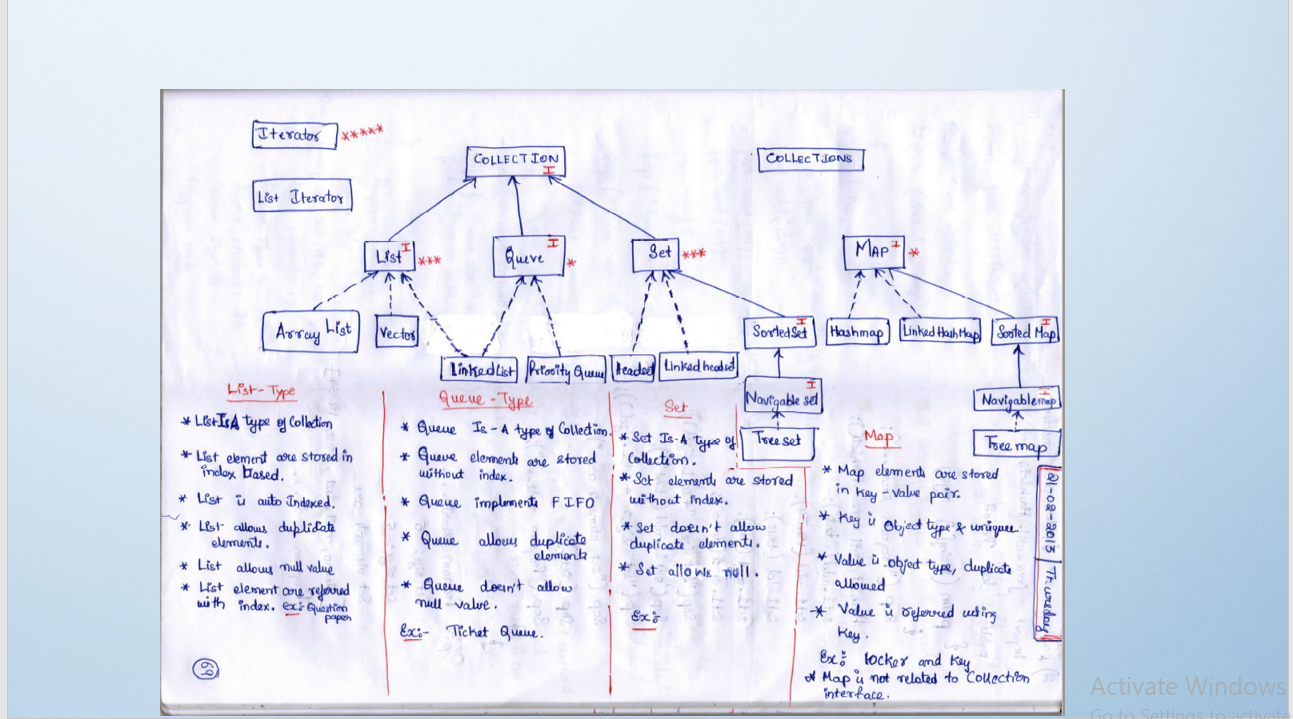 Iterator *****
COLLECTION
I
COLLECTIONS
List Iterator
List I ***
Queue I *
Set ***
MAP I *
Array List
Vector
Linked List
Priority Queue
Headset
Linked headset
SortedSet I
Hashmap
Linked Hash Map
Sorted Map I
Navigable set I
Tree set
Navigablemap I
Tree map
List-Type
* List Is A type of Collection
* List element are stored in
index based.
* List is auto Indexed.
* List allows duplicate
elements.
* List allows null value
* List element are referred
with index. ex:- Question
paper
69
Queue - Type
* Queue Is-A type of Collection.
* Queue elements are stored
without index.
* Queue implements FIFO
* Queue allows duplicate
elements
* Queue doesn't allow
null value.
Ex:- Ticket Queue.
Set
* Set Is-A type of
Collection.
* Set elements are stored
without index.
* Set doesn't allow
duplicate elements.
* Set allows null.
Ex:
Map
* Map elements are stored
in Key-Value pair.
* Key is Object type & unique
* Value is object type, duplicate
allowed
* Value is referred using
Key.
Ex: locker and Key
* Map is not related to Collection
interface.
21-02-2013 Thursday
Activate Windows
Go to Settings to activate